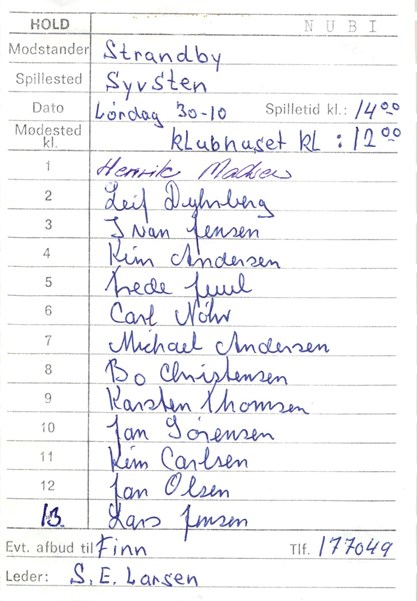 HOLD NUBI
Modstander Strandby
Spillested Syvsten
Dato Lördag 30-10 Spilletid kl.: 14⁰⁰
Mødested kl. Klubhuset kl : 12⁰⁰
1 Henrik Madsen
2 Leif Dyhrberg
3 Ivan Jensen
4 Kim Andersen
5 Frede Juul
6 Carl Nöhr
7 Michael Andersen
8 Bo Christensen
9 Karsten Thomsen
10 Jan Sörensen
11 Kim Carlsen
12 Jan Olsen
13. Lars Jensen
Evt. afbud til Finn Tlf. 177049
Leder: S. E. Larsen